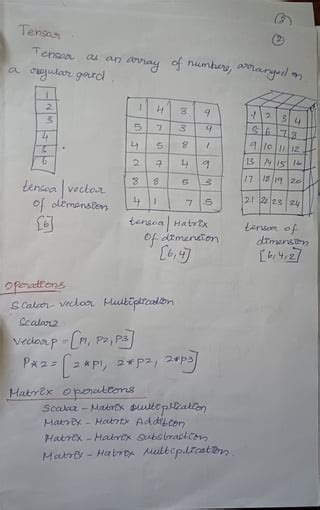 (2)
Tensor.
Tensor as an array of numbers, arranged on
a regular grid
1
2
3
4
5
6
tensor/vector
of dimension
[6]
1 4 3 9
5 7 3 9
4 5 8 1
2 7 4 9
8 8 5 3
4 1 7 5
tensor/Matrix
of dimension
[6,4]
1 2 3 4
5 6 7 8
9 10 11 12
13 14 15 16
17 18 19 20
21 22 23 24
tensor of
dimension
[6,4,2]
Operations
Scalar-vector Multiplication
Scalar2
vector P = [P1, P2, P3]
P*2 = [2*P1, 2*P2, 2*P3]
Matrix Operations
Scalar-Matrix Multiplication
Matrix-Matrix Addition
Matrix-Matrix Substraction
Matrix-Matrix Multiplication.